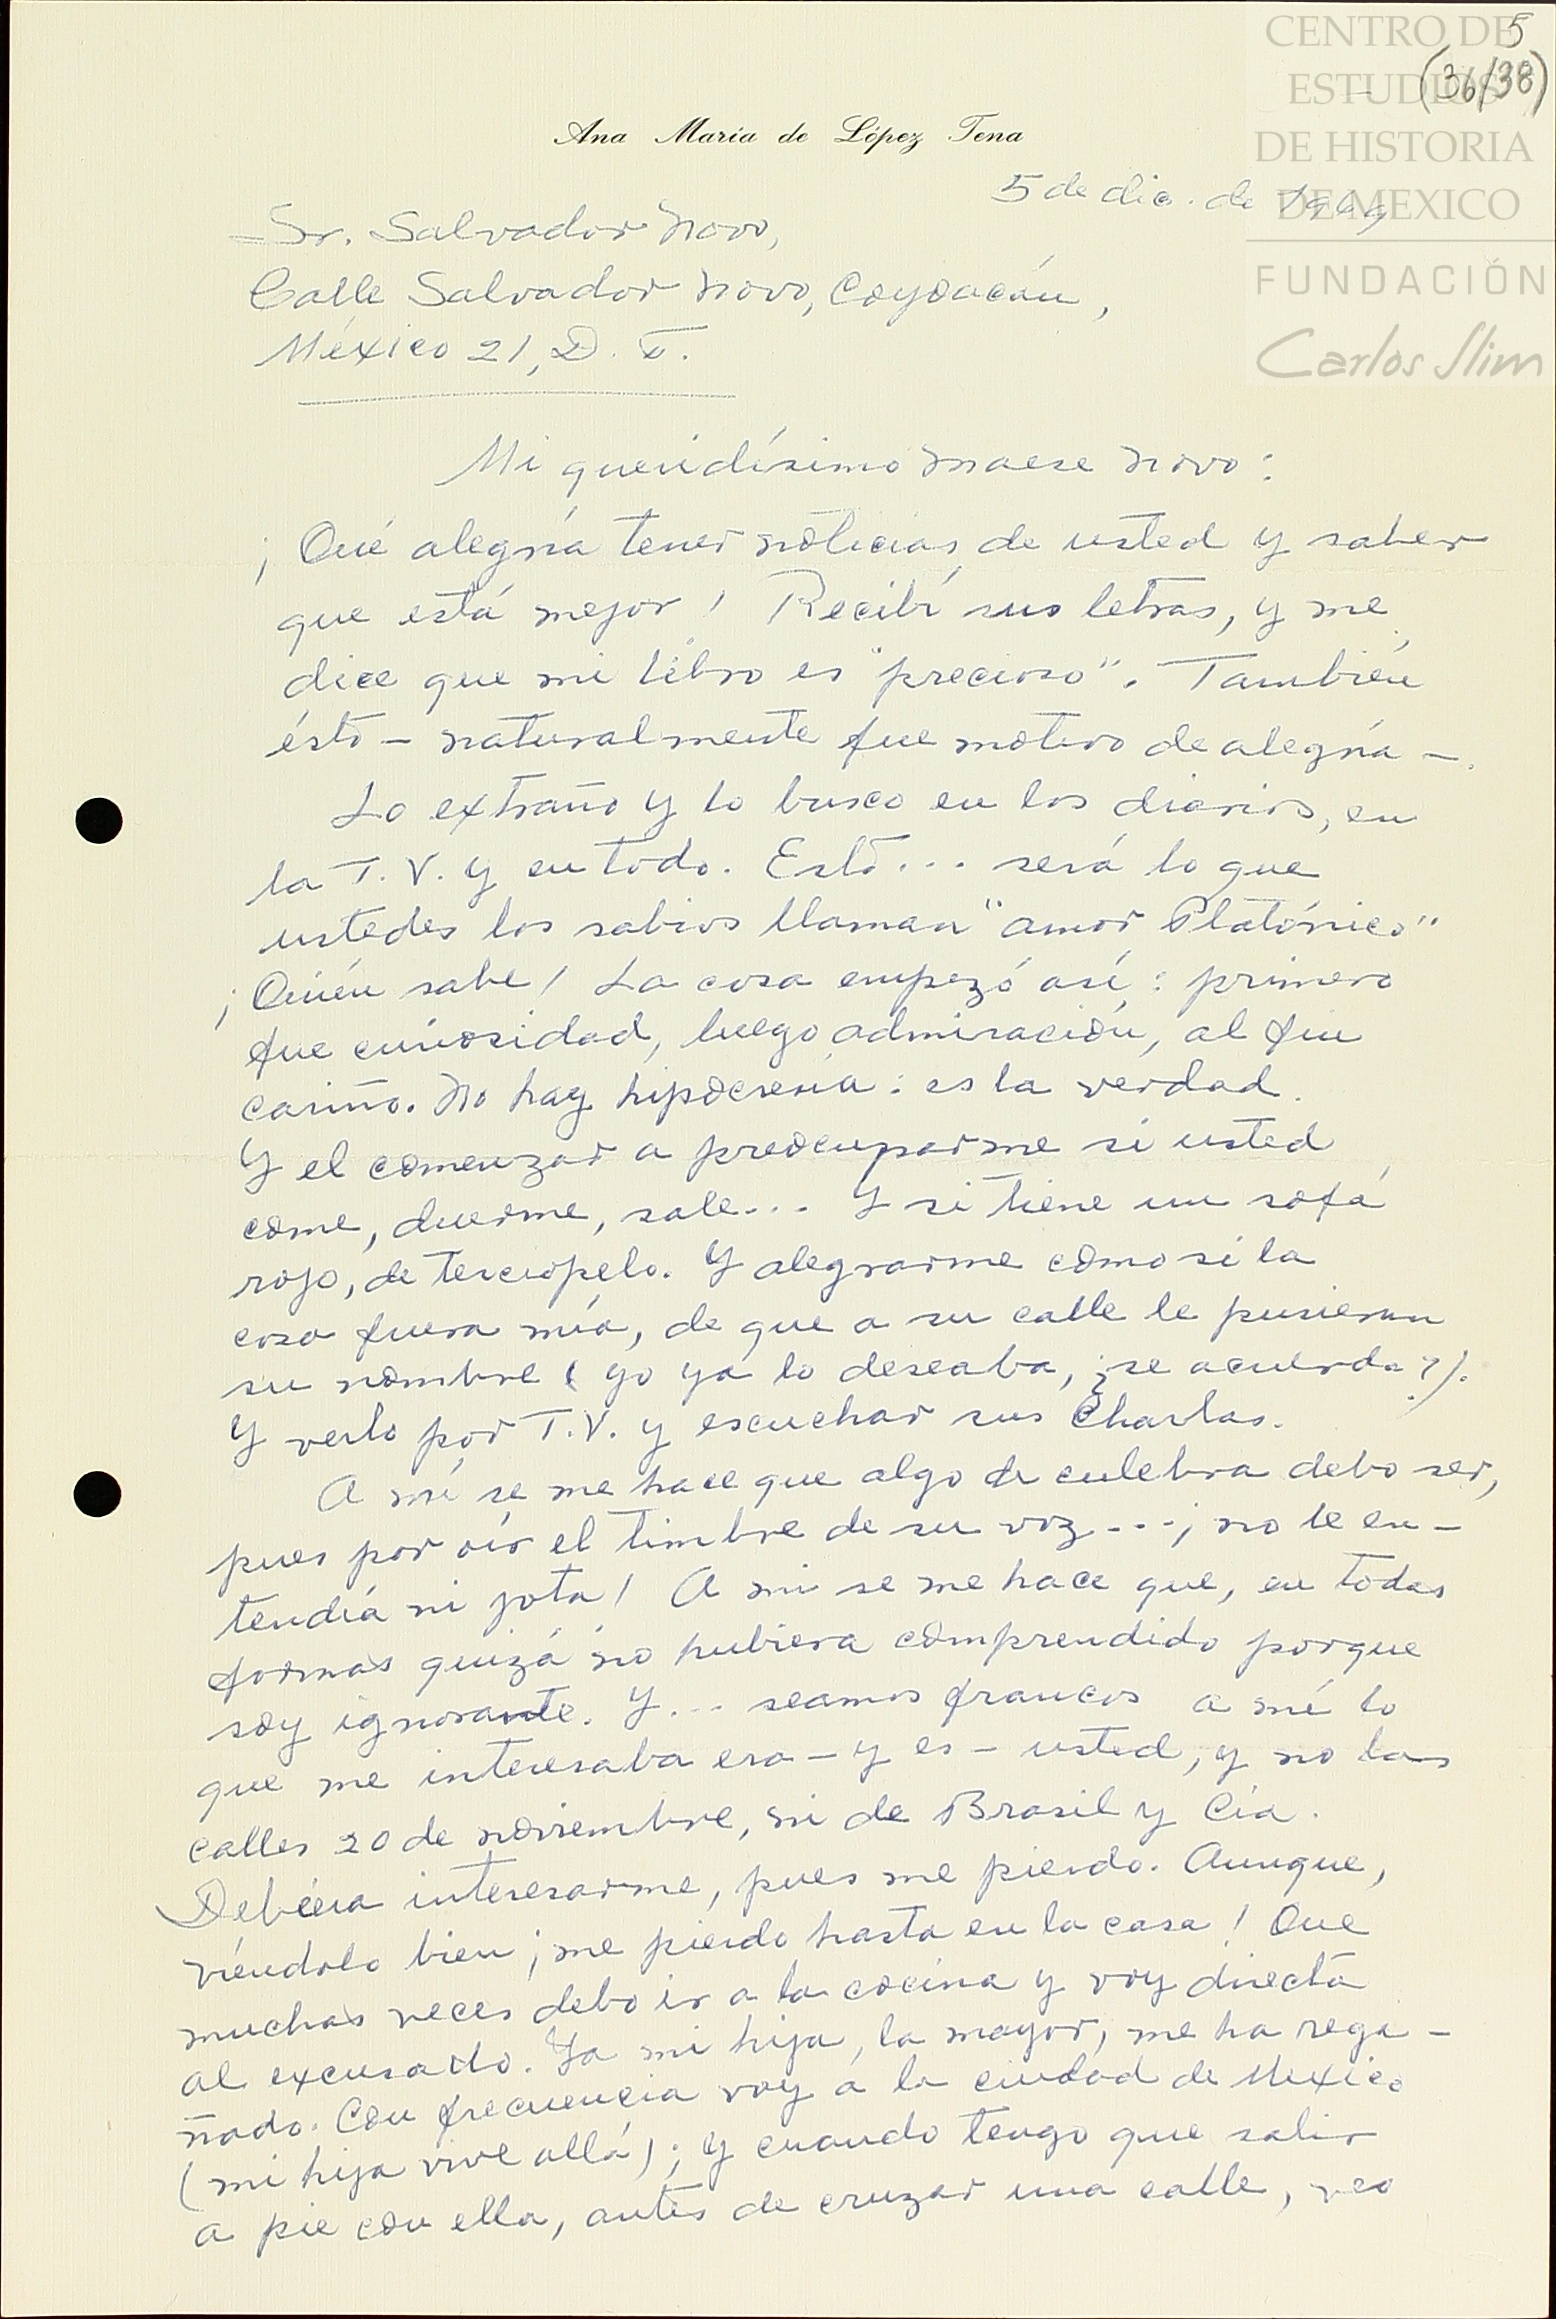 CENTRO DE
ESTUDIOS
DE HISTORIA
DE MEXICO
FUNDACIÓN
Carlos Slim
5
(36/38)
Ana María de López Tena
5 de dic. de 1969
Sr. Salvador Novo,
Calle Salvador Novo, Coyoacán,
México 21, D. F.
Mi queridísimo maese Novo:
¡Qué alegría tener noticias de usted y saber
que está mejor! Recibí sus letras, y me
dice que mi libro es "precioso". También
ésto – naturalmente fue motivo de alegría –.
Lo extraño y lo busco en los diarios, en
la T. V. y en todo. Esto... será lo que
ustedes los sabios llaman "amor Platónico"
¡Quién sabe! La cosa empezó así: primero
fue curiosidad, luego admiración, al fin
cariño. No hay hipocresía: es la verdad.
Y el comenzar a preocuparme si usted
come, duerme, sale... Y si tiene un sofá
rojo, de terciopelo. Y alegrarme como si la
cosa fuera mía, de que a su calle le pusieran
su nombre (yo ya lo deseaba, ¿se acuerda?).
Y verlo por T.V. y escuchar sus Charlas.
A mí se me hace que algo de culebra debo ser,
pues por oír el timbre de su voz... ¡no le en-
tendía ni jota! A mi se me hace que, en todas
formas quizá no hubiera comprendido porque
soy ignorante. Y... seamos francos a mí lo
que me interesaba era – y es – usted, y no las
calles 20 de noviembre, ni de Brasil y Cía.
Debiera interesarme, pues me pierdo. Aunque,
viéndolo bien ¡me pierdo hasta en la casa! Que
muchas veces debo ir a la cocina y voy directa
al excusado. Ya mi hija, la mayor, me ha rega-
ñado. Con frecuencia voy a la ciudad de México
(mi hija vive allá); y cuando tengo que salir
a pie con ella, antes de cruzar una calle, veo